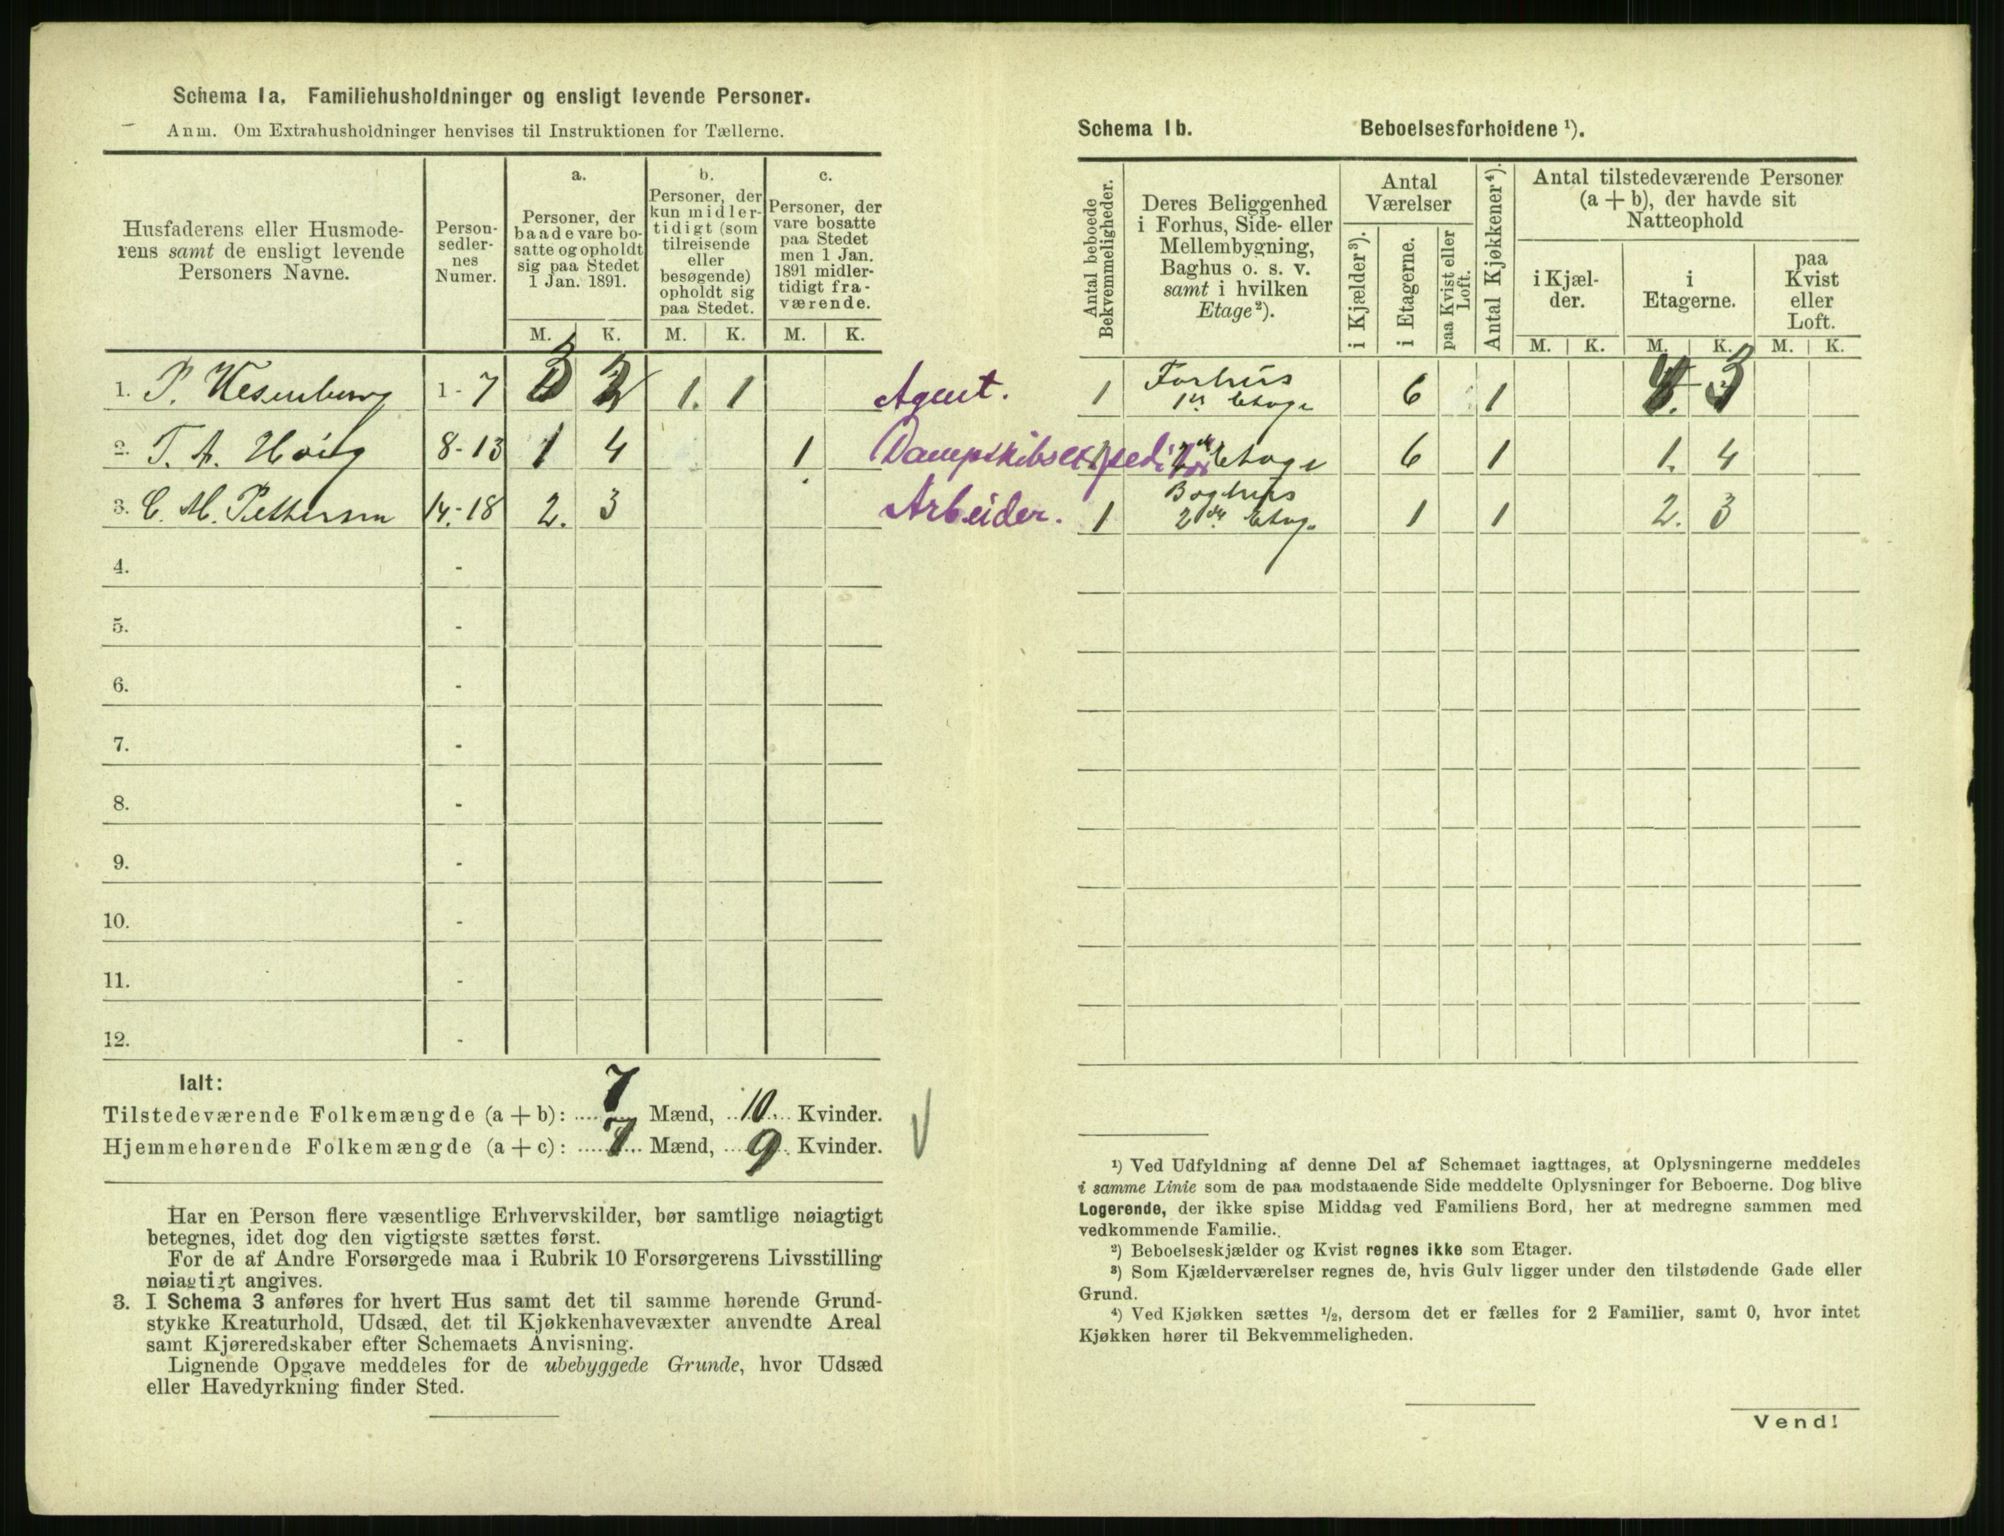 Schema 1a. Familiehusholdninger og ensligt levende Personer.
Anm. Om Extrahusholdninger henvises til Instruktionen for Tællerne.
Husfaderens eller Husmode-
rens samt de ensligt levende
Personers Navne.
Person-
sedler-
nes
Numer.
a.
Personer, der
baade vare bo-
satte og opholdt
sig paa Stedet
1 Jan. 1891.
b.
Personer, der
kun midler-
tidigt (som
tilreisende
eller
besøgende)
opholdt sig
paa Stedet.
c.
Personer, der
vare bosatte
paa Stedet
men 1 Jan.
1891 midler-
tidigt fra-
værende.
M. K. M. K. M. K.
1. P. Wesenberg 1-7 3 2 1. 1 Agent.
2. T. A. Höieg 8-13 1 4 1. Dampskibsexpeditør
3. C. M. Pettersen 14-18 2. 3 Arbeider.
4. -
5. -
6. -
7. -
8. -
9. -
10. -
11. -
12. -
Ialt:
Tilstedeværende Folkemængde (a + b): 7 Mænd, 10 Kvinder.
Hjemmehørende Folkemængde (a + c): 7 Mænd, 9 Kvinder.
Har en Person flere væsentlige Erhvervskilder, bør samtlige nøiagtigt
betegnes, idet dog den vigtigste sættes først.
For de af Andre Forsørgede maa i Rubrik 10 Forsørgerens Livsstilling
nøiagtigt angives.
3. I Schema 3 anføres for hvert Hus samt det til samme hørende Grund-
stykke Kreaturhold, Udsæd, det til Kjøkkenhavevæxter anvendte Areal
samt Kjøreredskaber efter Schemaets Anvisning.
Lignende Opgave meddeles for de ubebyggede Grunde, hvor Udsæd
eller Havedyrkning finder Sted.
Schema 1b. Beboelsesforholdene ¹).
Antal beboede
Bekvemmeligheder.
Deres Beliggenhed
i Forhus, Side- eller
Mellembygning,
Baghus o. s. v.
samt i hvilken
Etage²).
Antal
Værelser
i Kjælder³).
i Etagerne.
paa Kvist eller
Loft.
Antal Kjøkkener⁴).
Antal tilstedeværende Personer
(a + b), der havde sit
Natteophold
i Kjæl-
der.
i
Etagerne.
paa
Kvist
eller
Loft.
M. K. M. K. M. K.
1 Forhus
1ste Etage 6 1 4. 3
1 2den Etage 6 1 1. 4
1 Baghus
2den Etage 1 1 2. 3
¹) Ved Udfyldning af denne Del af Schemaet iagttages, at Oplysningerne meddeles
i samme Linie som de paa modstaaende Side meddelte Oplysninger for Beboerne. Dog blive
Logerende, der ikke spise Middag ved Familiens Bord, her at medregne sammen med
vedkommende Familie.
²) Beboelseskjælder og Kvist regnes ikke som Etager.
³) Som Kjælderværelser regnes de, hvis Gulv ligger under den tilstødende Gade eller
Grund.
⁴) Ved Kjøkken sættes ½, dersom det er fælles for 2 Familier, samt 0, hvor intet
Kjøkken hører til Bekvemmeligheden.
Vend!